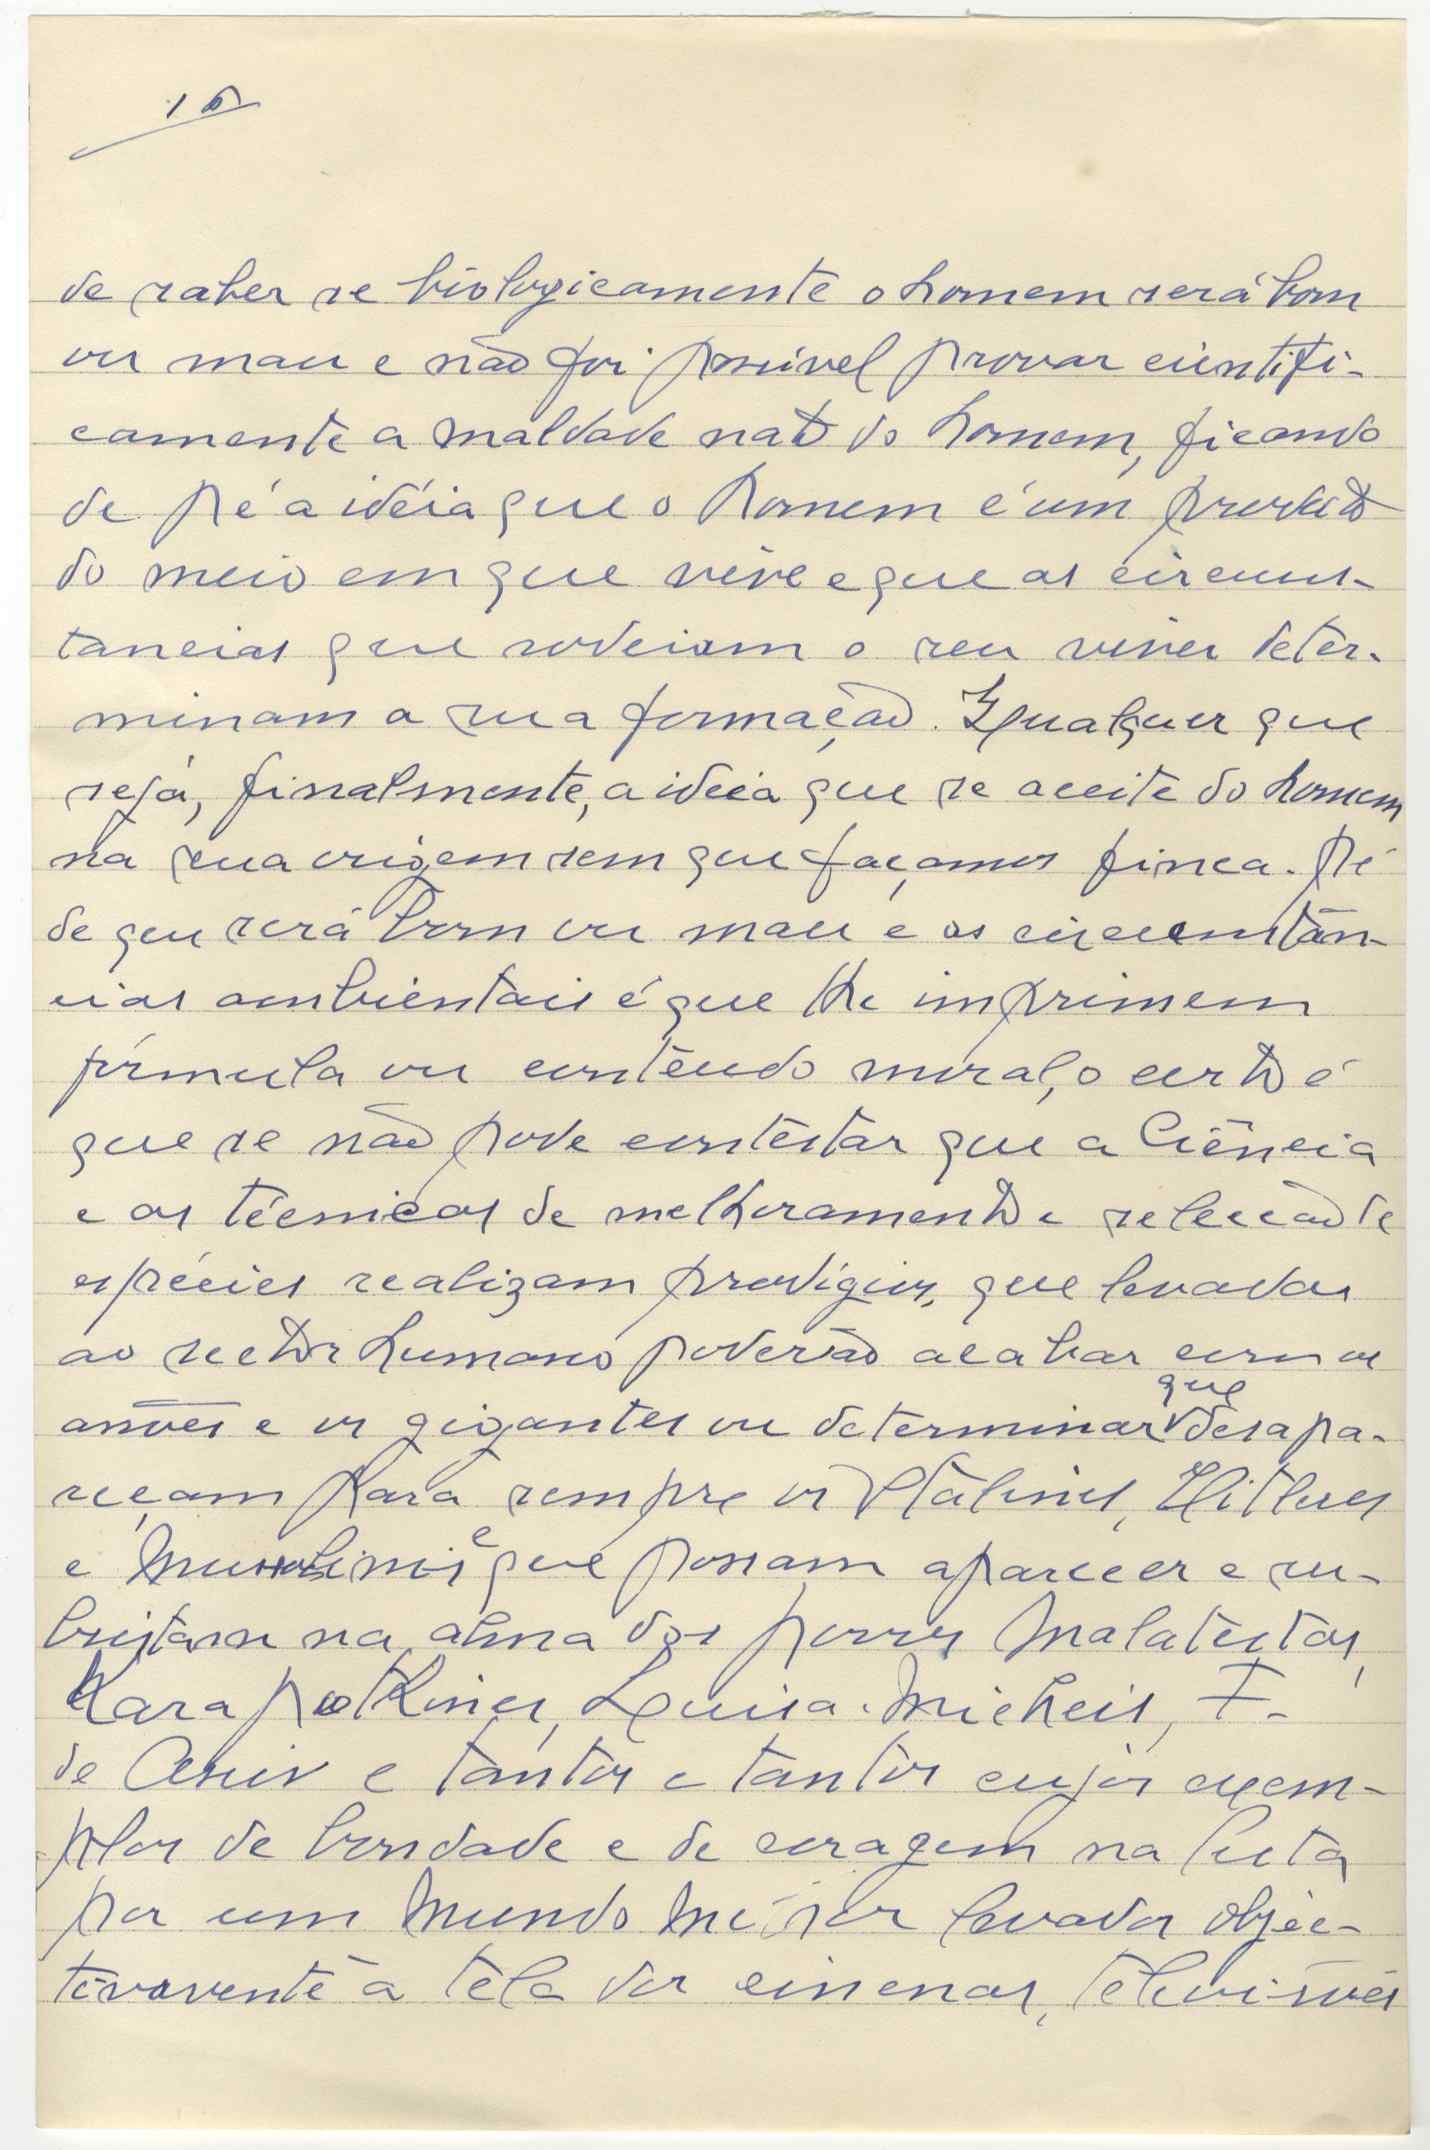 16
de saber se biologicamente o homem será bom
ou mau e não foi possível provar cientifi-
camente a maldade nato do homem, ficando
de pé a idéia que o homem é um produto
do meio em que vive e que as circuns-
tancias que rodeiam o seu viver deter-
minam a sua formação. Qualquer que
sejá, finalmente, a ideia que se aceite do homem
na sua origem sem que façamos finca-pé
de que será bom ou mau e as circunstân-
cias ambientais é que lhe imprimem
fórmula ou conteudo moral, o certo é
que se não pode contestar que a Ciência
e as técnicas de melhoramento e selecção de
espécies realizam prodígios, que levados
ao sector humano poderão acabar com os
anões e os gigantes ou determinar que desapa-
reçam para sempre os Stalines, Hitleres
e Mussolinis e que possam aparecer e su-
bsistam na alma dos povos Malatestas,
Karapotkines, Luisa-Micheis, F.
de Assis e tantos e tantos cujos exem-
plos de bondade e de coragem na luta
por um Mundo Melhor levados objec-
tivavente à tela dos cinenas, televisões